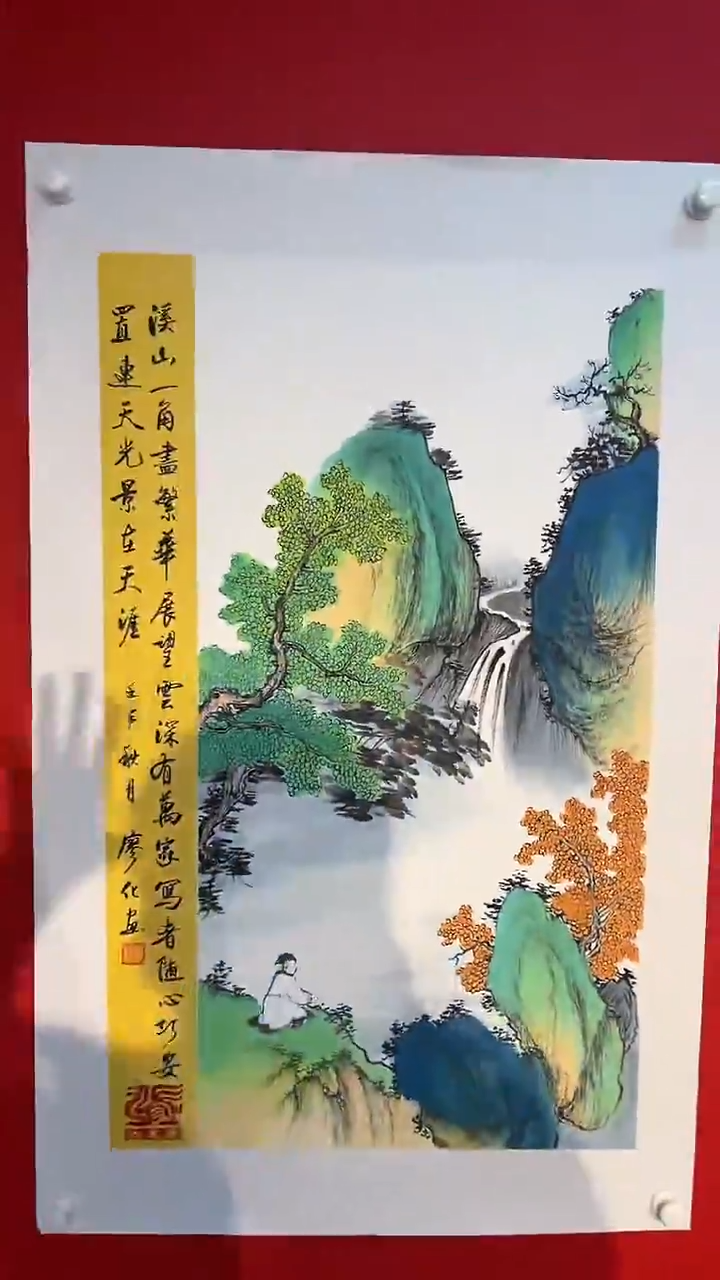 溪山一角盡繁華展望雲深有萬家寫者随心巧安
置連天光景在天涯
秋月 廖化画